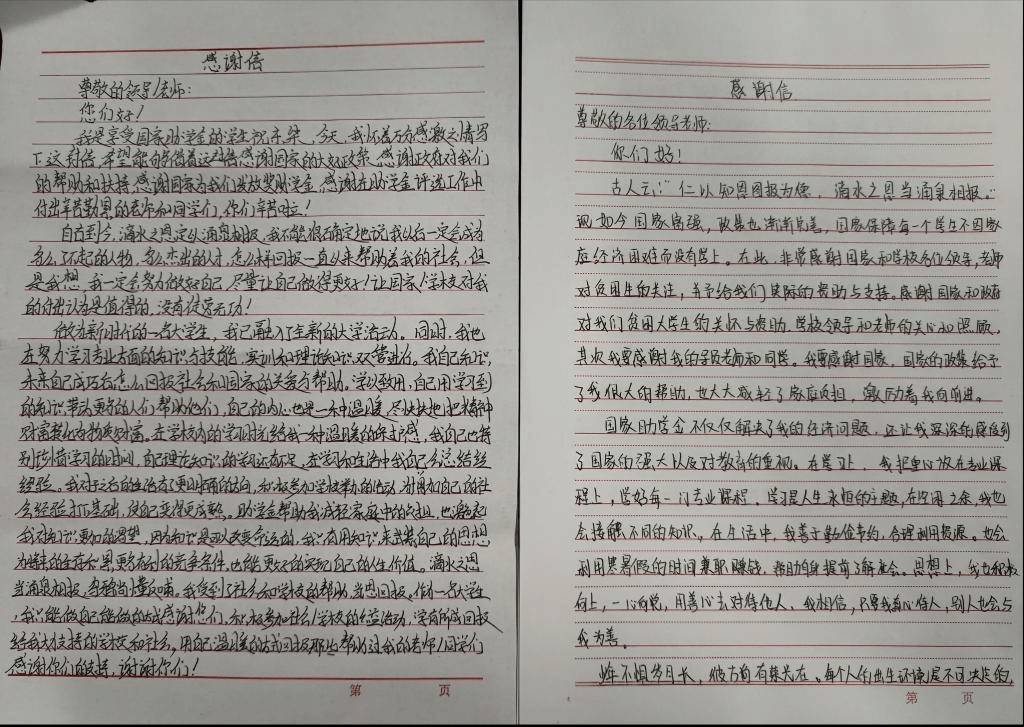 感谢信
尊敬的领导/老师:
您们好!
我是享受国家助学金的学生祝东梁,今天,我怀着万分感激之情写
下这封信,希望能向借着这封信感谢国家的大好政策,感谢政府对我们
的帮助和扶持,感谢国家为我们发放奖助学金,感谢在助学金评选工作中
付出辛苦勤累的老师和同学们,你们辛苦啦!
自古到今,滴水之恩定以涌泉相报,我不能很确定地说我以后一定会成为
多么了不起的人物,多么杰出的人才,怎么样回报一直以来帮助着我的社会,但
是我想,我一定会努力做好自己,尽量让自己做得更好!让国家、学校对我
的付出认为是值得的,没有徒劳无功!
做为新时代的一名大学生,我已融入了全新的大学活动。同时,我也
在努力学习专业方面的知识与技能,实训和理论知识双管进行。我自己知识,
未来自己成功后怎么回报社会和国家的关爱与帮助。学以致用,自己用学习到
的知识带动更多的人们帮助他们,自己的内心也是一种温暖,尽快扶地把精神
财富转化为物质财富。在学校内的学习时光给我一种温暖的归属感,我自己也特
别珍惜学习的时间,自己理论知识的学习还有不足,在学习和生活中我自己多总结经
经验。我对于名的生活有了更明确的方向,积极参加学校举办的活动,增加自己的社
会经验打下基础,使自己变得更成熟。助学金帮助我减轻家庭中的负担,也激起
我对知识更加的渴望,因为知识是可以改变命运的,我只有用知识来武装自己的思想
为将的生存积累更多有利的竞争条件,也能更好的实现自己的人生价值。滴水之恩
当涌泉相报,乌鸦尚懂反哺。我受到了社会和学校的帮助,当思回报。作为一名大学生
,我只能做自己能做的去感谢你们,积极参加社会/学校的公益活动,学有所成回报
给我大力支持的学校和社会,用自己温暖的方式回报那些帮助过我的老师/同学们
感谢你们的支持,谢谢你们!
第 页
感谢信
尊敬的各位领导老师:
你们好!
古人云:"仁以知恩图报为德,滴水之恩当涌泉相报。"
现如今国家富强,政策也渐渐完善,国家保障每一个学生不因家
庭经济困难而没有学上。在此,非常感谢国家和学校各位领导,老师
对贫困生的关注,并予给我们实际的资助与支持。感谢国家和政府
对我们贫困大学生的关怀与资助,学校领导和老师的关心和照顾,
其次我要感谢我的学院老师和同学。我要感谢国家,国家的政策给予
了我很大的帮助,也大大减轻了家庭负担,激励着我向前进。
国家助学金不仅仅解决了我的经济问题,还让我深深的感受到
了国家的强大以及对教育的重视。在学习上,我把重心放在专业课
程上,学好每一门专业课程,学习是人生永恒的主题,在空闲之余,我也
会接触不同的知识。在生活中,我善于勤俭节约,合理利用资源。也会
利用寒暑假的时间兼职赚钱,帮助自身提前了解社会。思想上,我也积极
向上,一心向党,用善心去对待他人,我相信,只要我真心待人,别人也会与
我为善。
烨不惧岁月长,彼方尚有荣光在。每个人的出生环境是不可决定的,
第 页